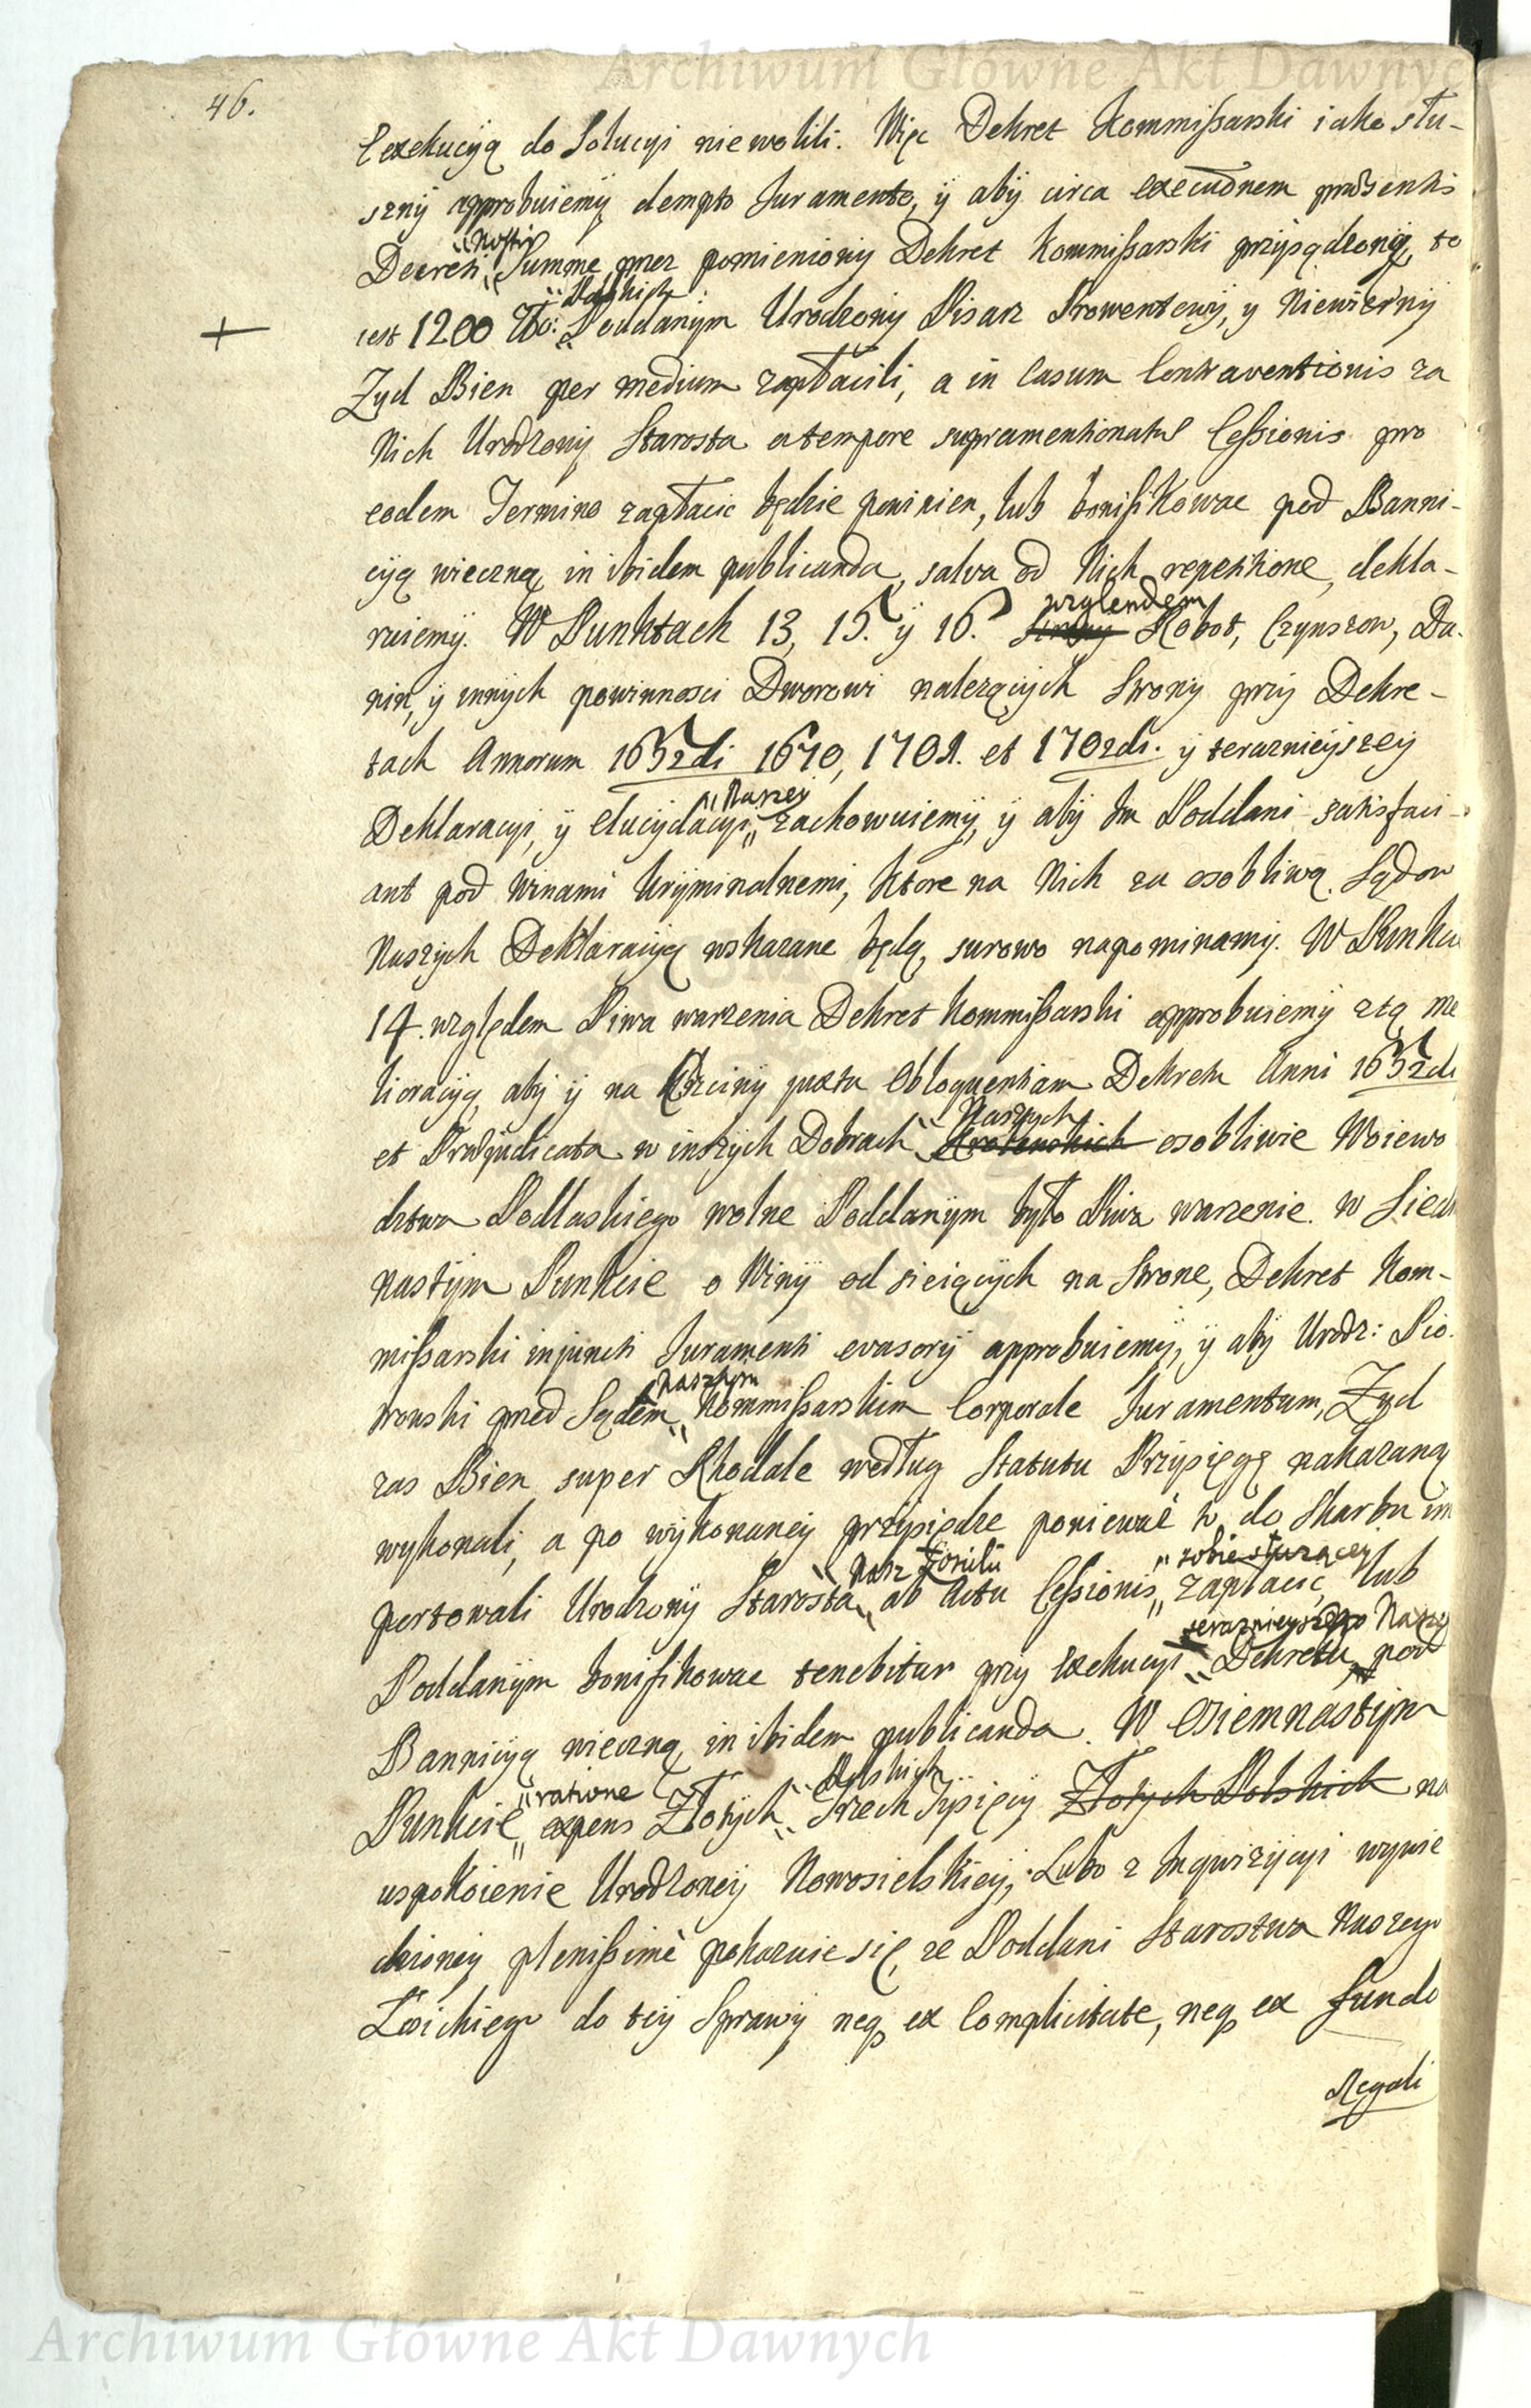 Archiwum Główne Akt Dawnyc
46.
Exekucyą do Solucyi niewolili. Więc Dekret Kommißarski iako słu-
sznÿ approbuiemy dempto Juramento, ÿ abÿ circa executionem præsentis
Nostri
Decreti Summę przez pomieniony Dekret Kommißarski przysądzoną, to
Polskich
+
iest 1200 Zło: Poddanÿm Urodzony Pisarz Prowentowÿ, y Niewiernÿ
Zyd Bien per medium zapłacili, a in Casum Contraventionis za
Nich Urodzony Starosta a tempore supramentionatæ Ceßionis pro
eodem Termino zapłacic będzie powinien, lub bonifikowac pod Banni-
cyą wieczną, in ibidem publicanda, salva od Nich repetitione, dekla-
ruiemÿ. W Punktach 13, 15. ÿ 16.
względem
Robot, Czynszow, Da-
nin, ÿ innych powinnosci Dworowi nalezących Strony przÿ Dekre-
tach Annorum 1652di 1670, 1701. et 1702di. ÿ teraznieÿszeÿ
Naszey
Deklaracyi, ÿ Elucydacyi, zachowuiemÿ, ÿ abÿ Im Poddani satisfaci-
ant pod Winami Krÿminalnemi, Ktore na Nich za osobliwą Sądow
Naszych Deklaracyą wskazane będą, surowo napominamy. W Punkcie
14. względem Piwa warzenia Dekret Kommißarski approbuiemÿ z tą me
lioracyą, abÿ ÿ na Krzcinÿ juxta Obloquentiam Dekretu Anni 1652di
Naszych
et Præjudicata w inszych Dobrach Krolewskich osobliwie Woiewo
dztwa Podlaskiego wolne Poddanÿm było Piwa warzenie. W Siedm
nastÿm Punkcie o Winÿ od sieiących na Strone, Dekret Kom-
mißarski injuncti Juramenti evasorÿ approbuiemÿ, ÿ abÿ Urodz: Pio-
Naszÿm
trowski przed Sądem Kommißarskim Corporale Juramentum, Zyd
zas Bien super Rhodale według Statutu Przysięgę nakazaną
wykonali, a po wÿkonaneÿ przysiędze poniewaz to do Skarbu im
Nasz sobie słuzącey
portowali Urodzony Starosta ab Actu Ceßionis, zapłacic, lub
teraznieyszego Nasze
Poddanÿm bonifikowac tenebitur przy Exekucyi Dekretu, pod
Bannicyą wieczną, in ibidem publicanda. W Osiemnastÿm
ratione Polskich
Punkcie expens Złotych Trzech Tysięcy Złotych Polskich na
uspokoienie Urodzoneÿ Nowosielskieÿ, Lubo z Inqwizycyi wywie
dzioneÿ plenißimè pokazuie się, ze Poddani Starostwa Naszego
Łoickiego do teÿ Sprawÿ neq ex Complicitate, neq ex fundo
Regali
Archiwum Główne Akt Dawnych